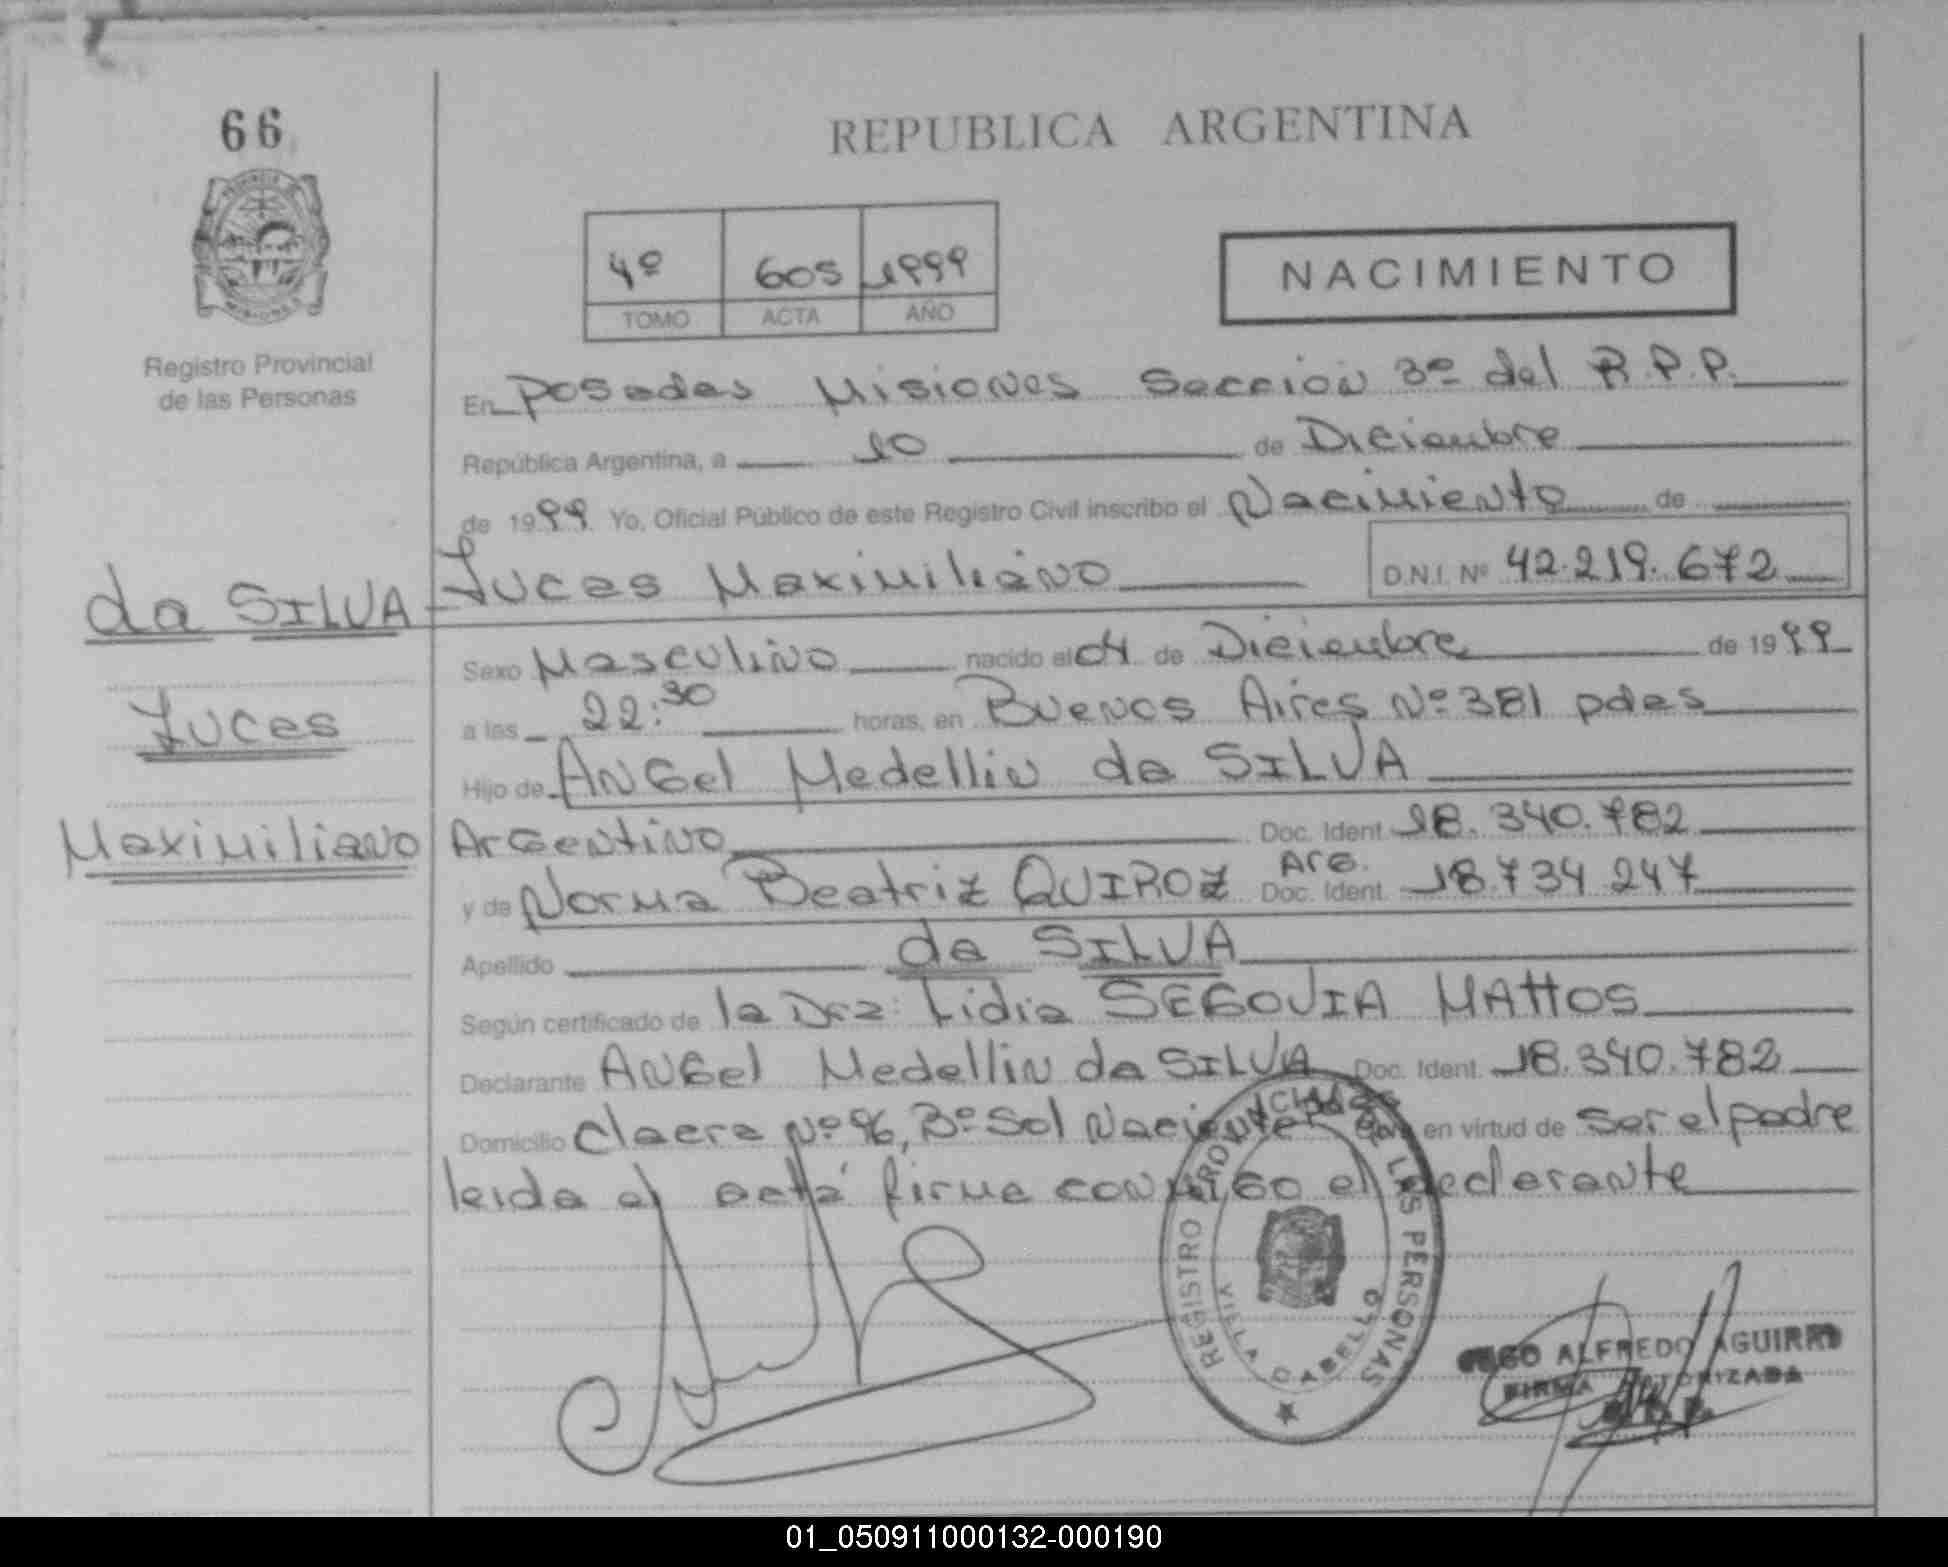 66
REPUBLICA ARGENTINA
4º 605 1999
TOMO ACTA AÑO
NACIMIENTO
Registro Provincial
de las Personas
En Posadas Misiones Sección 3º del R.P.P.
República Argentina, a 10 de Diciembre
de 1999 Yo, Oficial Público de este Registro Civil inscribo el Nacimiento de
Lucas Maximiliano D.N.I. Nº 42.219.672
da SILVA
Lucas
Maximiliano
Sexo Masculino nacido el 04 de Diciembre de 1999
a las 22:30 horas, en Buenos Aires Nº 381 pdas
Hijo de ANGel Medellin da SILVA
Argentino Doc. Ident. 18.340.782
y de Norma Beatriz QUIROZ Arg. Doc. Ident. 18.734.247
Apellido da SILVA
Según certificado de la Dra: Lidia SEGOVIA MATTOS
Declarante ANGel Medellin da SILVA Doc. Ident. 18.340.782
Domicilio Claera Nº 96, Bº Sol Naciente en virtud de ser el padre
leida el acta firma conmigo el declarante
REGISTRO PROVINCIAL DE LAS PERSONAS
VILLA CABELLO
HUGO ALFREDO AGUIRRE
FIRMA AUTORIZADA
01_050911000132-000190